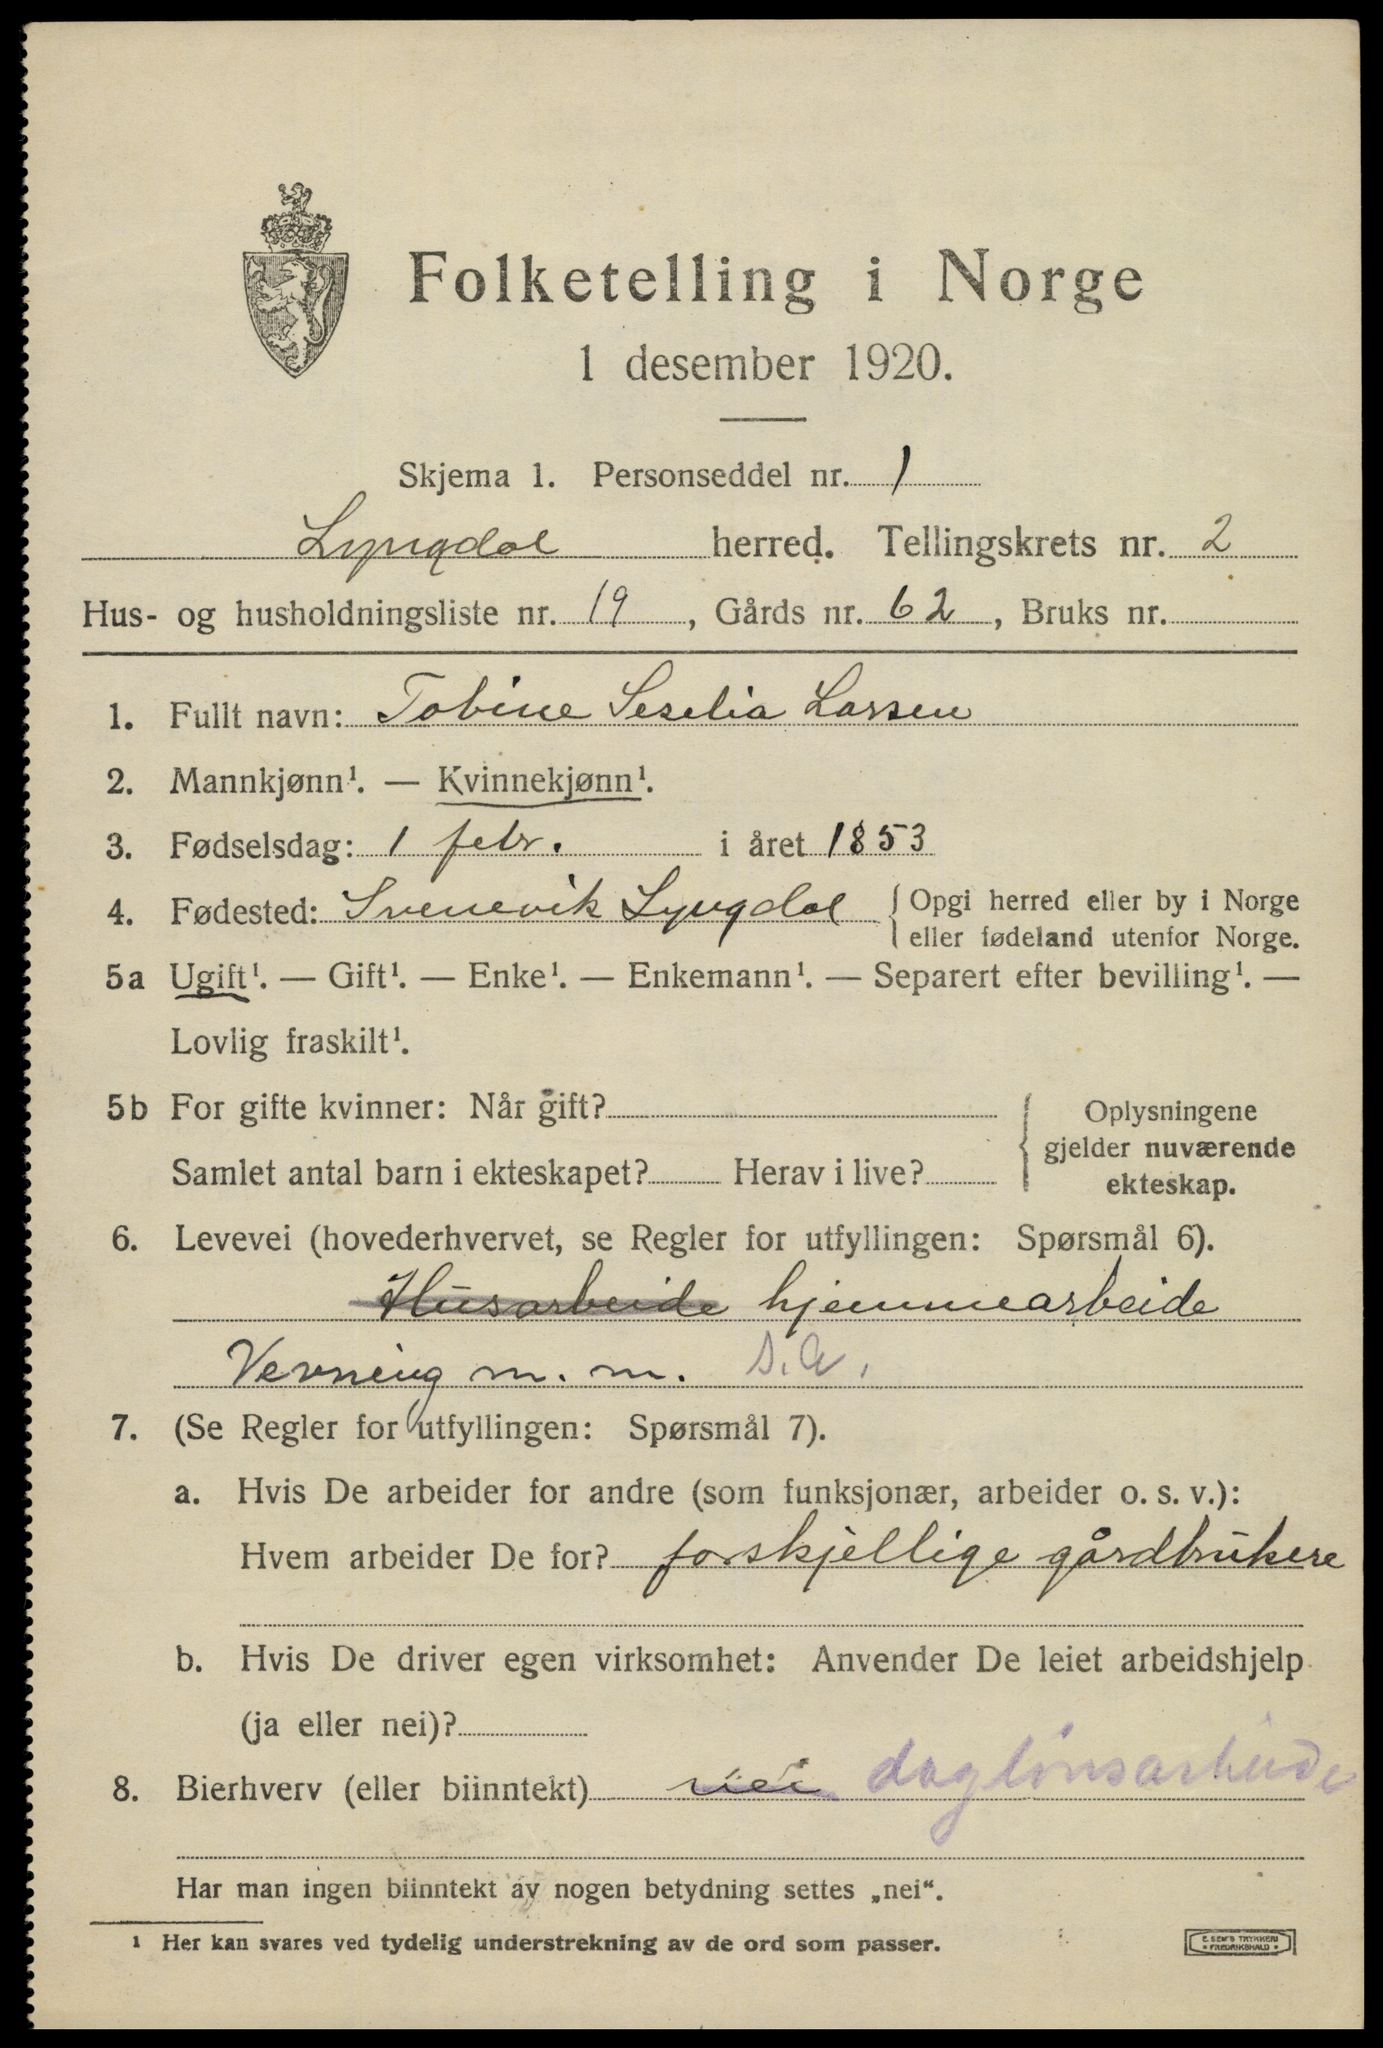 Folketelling i Norge
1 desember 1920.
Skjema 1. Personseddel nr. 1
Lyngdal herred. Tellingskrets nr. 2
Hus- og husholdningsliste nr. 19, Gårds nr. 62, Bruks nr.
1. Fullt navn: Tobine Seselia Larsen
2. Mannkjønn¹. — Kvinnekjønn¹.
3. Fødselsdag: 1 febr. i året 1853
4. Fødested: Svenevik Lyngdal { Opgi herred eller by i Norge
eller fødeland utenfor Norge.
5a Ugift¹. — Gift¹. — Enke¹. — Enkemann¹. — Separert efter bevilling¹. —
Lovlig fraskilt¹.
5b For gifte kvinner: Når gift? { Oplysningene
gjelder nuværende
Samlet antal barn i ekteskapet? Herav i live?
ekteskap.
6. Levevei (hovederhvervet, se Regler for utfyllingen: Spørsmål 6).
Husarbeide hjemmearbeide
Vevning m. m. S. A.
7. (Se Regler for utfyllingen: Spørsmål 7).
a. Hvis De arbeider for andre (som funksjonær, arbeider o. s. v.):
Hvem arbeider De for? forskjellige gårdbrukere
b. Hvis De driver egen virksomhet: Anvender De leiet arbeidshjelp
(ja eller nei)?
8. Bierhverv (eller biinntekt) nei daglönsarbeide
Har man ingen biinntekt av nogen betydning settes „nei“.
¹ Her kan svares ved tydelig understrekning av de ord som passer.
E. SEM'S TRYKKERI
• FREDRIKSHALD •